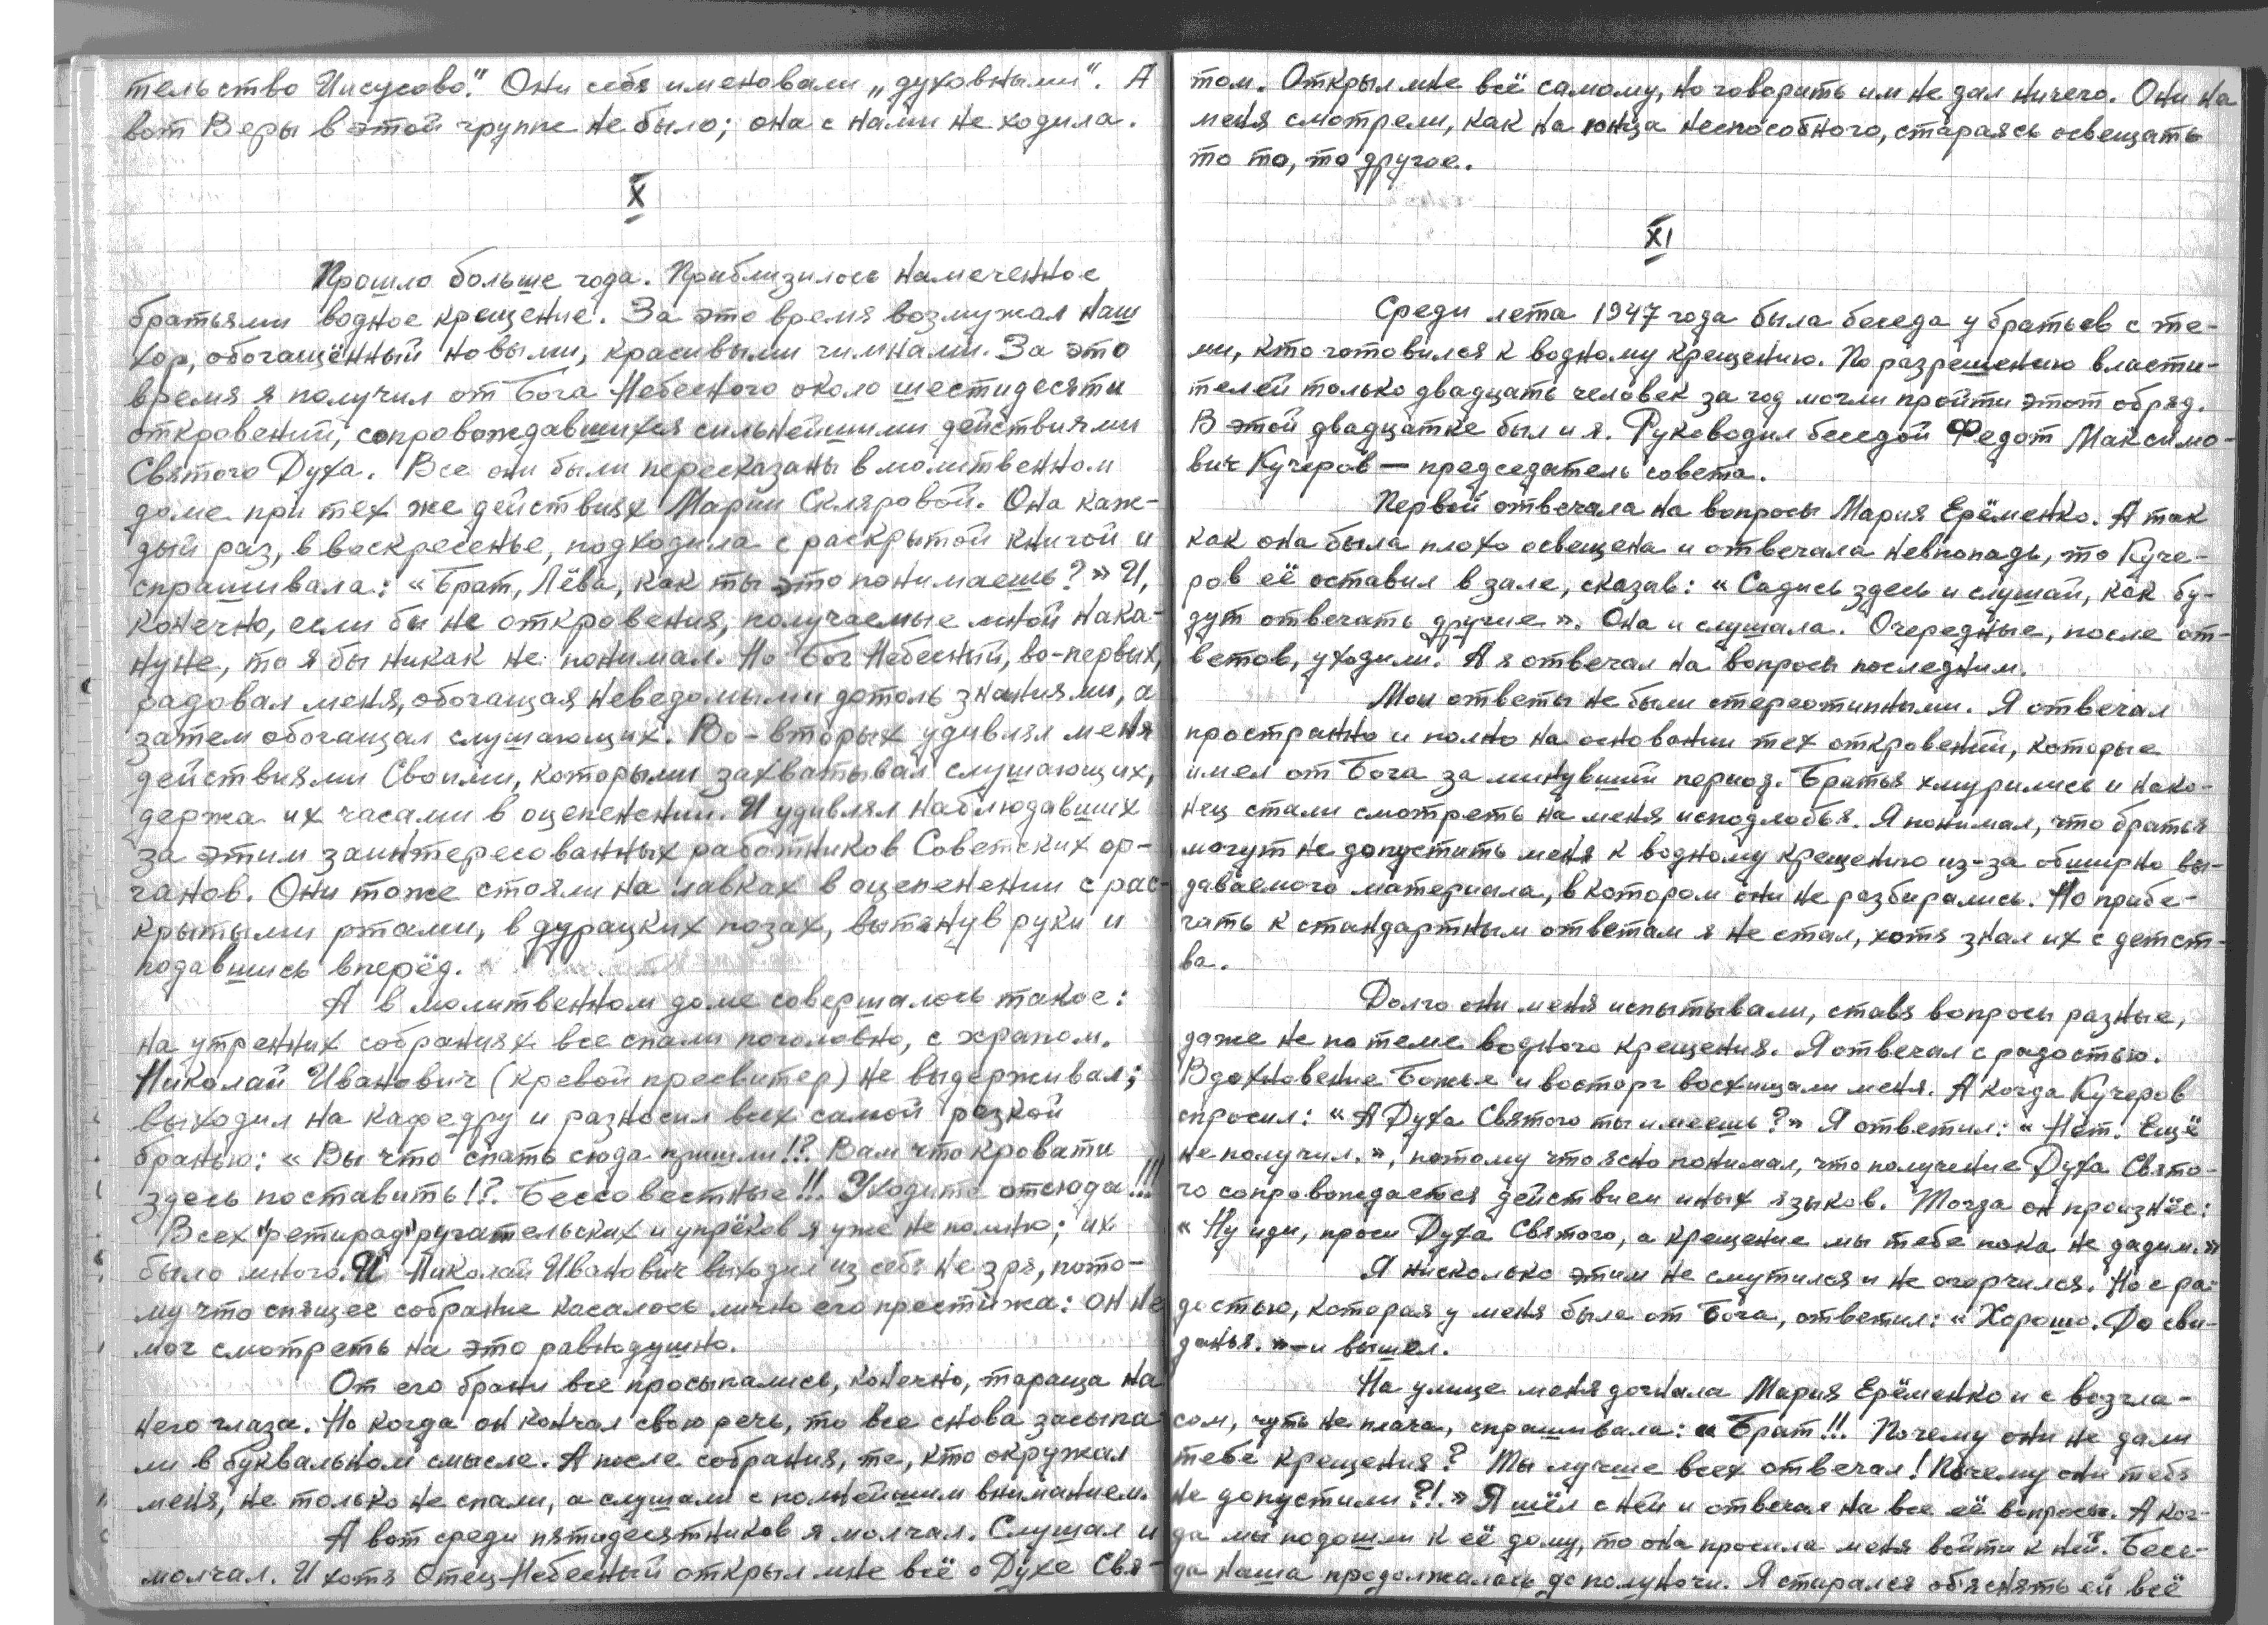 тельство Иисусово." Они себя именовали „духовными". А
вот Веры в этой группе не было; она с нами не ходила.
X
Прошло больше года. Приблизилось намеченное
братьями водное крещение. За это время возмужал наш
хор, обогащённый новыми, красивыми гимнами. За это
время я получил от Бога Небесного около шестидесяти
откровений, сопровождавшихся сильнейшими действиями
Святого Духа. Все они были пересказаны в молитвенном
доме при тех же действиях Марии Скляровой. Она каж-
дый раз, в воскресенье, подходила с раскрытой книгой и
спрашивала: «Брат, Лёва, как ты это понимаешь?» И,
конечно, если бы не откровения, получаемые мной нака-
нуне, то я бы никак не понимал. Но Бог Небесный, во-первых,
радовал меня, обогащая неведомыми дотоль знаниями, а
затем обогащал слушающих. Во-вторых удивлял меня
действиями Своими, которыми захватывал слушающих,
держа их часами в оцепенении. И удивлял наблюдавших
за этим заинтересованных работников Советских ор-
ганов. Они тоже стояли на лавках в оцепенении с рас-
крытыми ртами, в дурацких позах, вытянув руки и
подавшись вперёд.
А в молитвенном доме совершалось такое:
на утренних собраниях все спали поголовно, с храпом.
Николай Иванович (кревой пресвитер) не выдерживал;
выходил на кафедру и разносил всех самой резкой
бранью: «Вы что спать сюда пришли!? Вам что кровати
здесь поставить!? Бессовестные!!! Уходите отсюда!!!
Всех "ретирад" ругательских и упрёков я уже не помню; их
было много. И Николай Иванович выходил из себя не зря, пото-
му что спящее собрание касалось лично его престижа: он не
мог смотреть на это равнодушно.
От его брани все просыпались, конечно, тараща на
него глаза. Но когда он кончал свою речь, то все снова засыпа-
ли в буквальном смысле. А после собрания, те, кто окружал
меня, не только не спали, а слушали с полнейшим вниманием.
А вот среди пятидесятников я молчал. Слушал и
молчал. И хотя Отец Небесный открыл мне всё о Духе Свя-
том. Открыл мне всё самому, но говорить им не дал ничего. Они на
меня смотрели, как на юнца неспособного, стараясь освещать
то то, то другое.
XI
Среди лета 1947 года была беседа у братьев с те-
ми, кто готовился к водному крещению. По разрешению власти-
телей только двадцать человек за год могли пройти этот обряд.
В этой двадцатке был и я. Руководил беседой Федот Максимо-
вич Кучеров — председатель совета.
Первой отвечала на вопросы Мария Ерёменко. А так
как она была плохо освещена и отвечала невпопадь, то Куче-
ров её оставил в зале, сказав: «Садись здесь и слушай, как бу-
дут отвечать другие». Она и слушала. Очередные, после от-
ветов, уходили. А я отвечал на вопросы последним.
Мои ответы не были стереотипными. Я отвечал
пространно и полно на основании тех откровений, которые
имел от Бога за минувший период. Братья хмурились и нако-
нец стали смотреть на меня исподлобья. Я понимал, что братья
могут не допустить меня к водному крещению из-за обширно вы-
даваемого материала, в котором они не разбирались. Но прибе-
гать к стандартным ответам я не стал, хотя знал их с детст-
ва.
Долго они меня испытывали, ставя вопросы разные,
даже не по теме водного крещения. Я отвечал с радостью.
Вдохновение Божье и восторг восхищали меня. А когда Кучеров
спросил: «А Духа Святого ты имеешь?» Я ответил: «Нет. Ещё
не получил.», потому что ясно понимал, что получение Духа Свято-
го сопровождается действием иных языков. Тогда он произнёс:
«Ну иди, проси Духа Святого, а крещение мы тебе пока не дадим.»
Я нисколько этим не смутился и не огорчился. Но с ра-
достью, которая у меня была от Бога, ответил: «Хорошо. До сви-
данья.» - и вышел.
На улице меня догнала Мария Ерёменко и с возгла-
сом, чуть не плача, спрашивала: «Брат!!. Почему они не дали
тебе крещения? Ты лучше всех отвечал! Почему они тебя
не допустили?!.» Я шёл с ней и отвечал на все её вопросы. А ког-
да мы подошли к её дому, то она просила меня войти к ней. Бесе-
да наша продолжалась до полуночи. Я старался объяснять ей всё